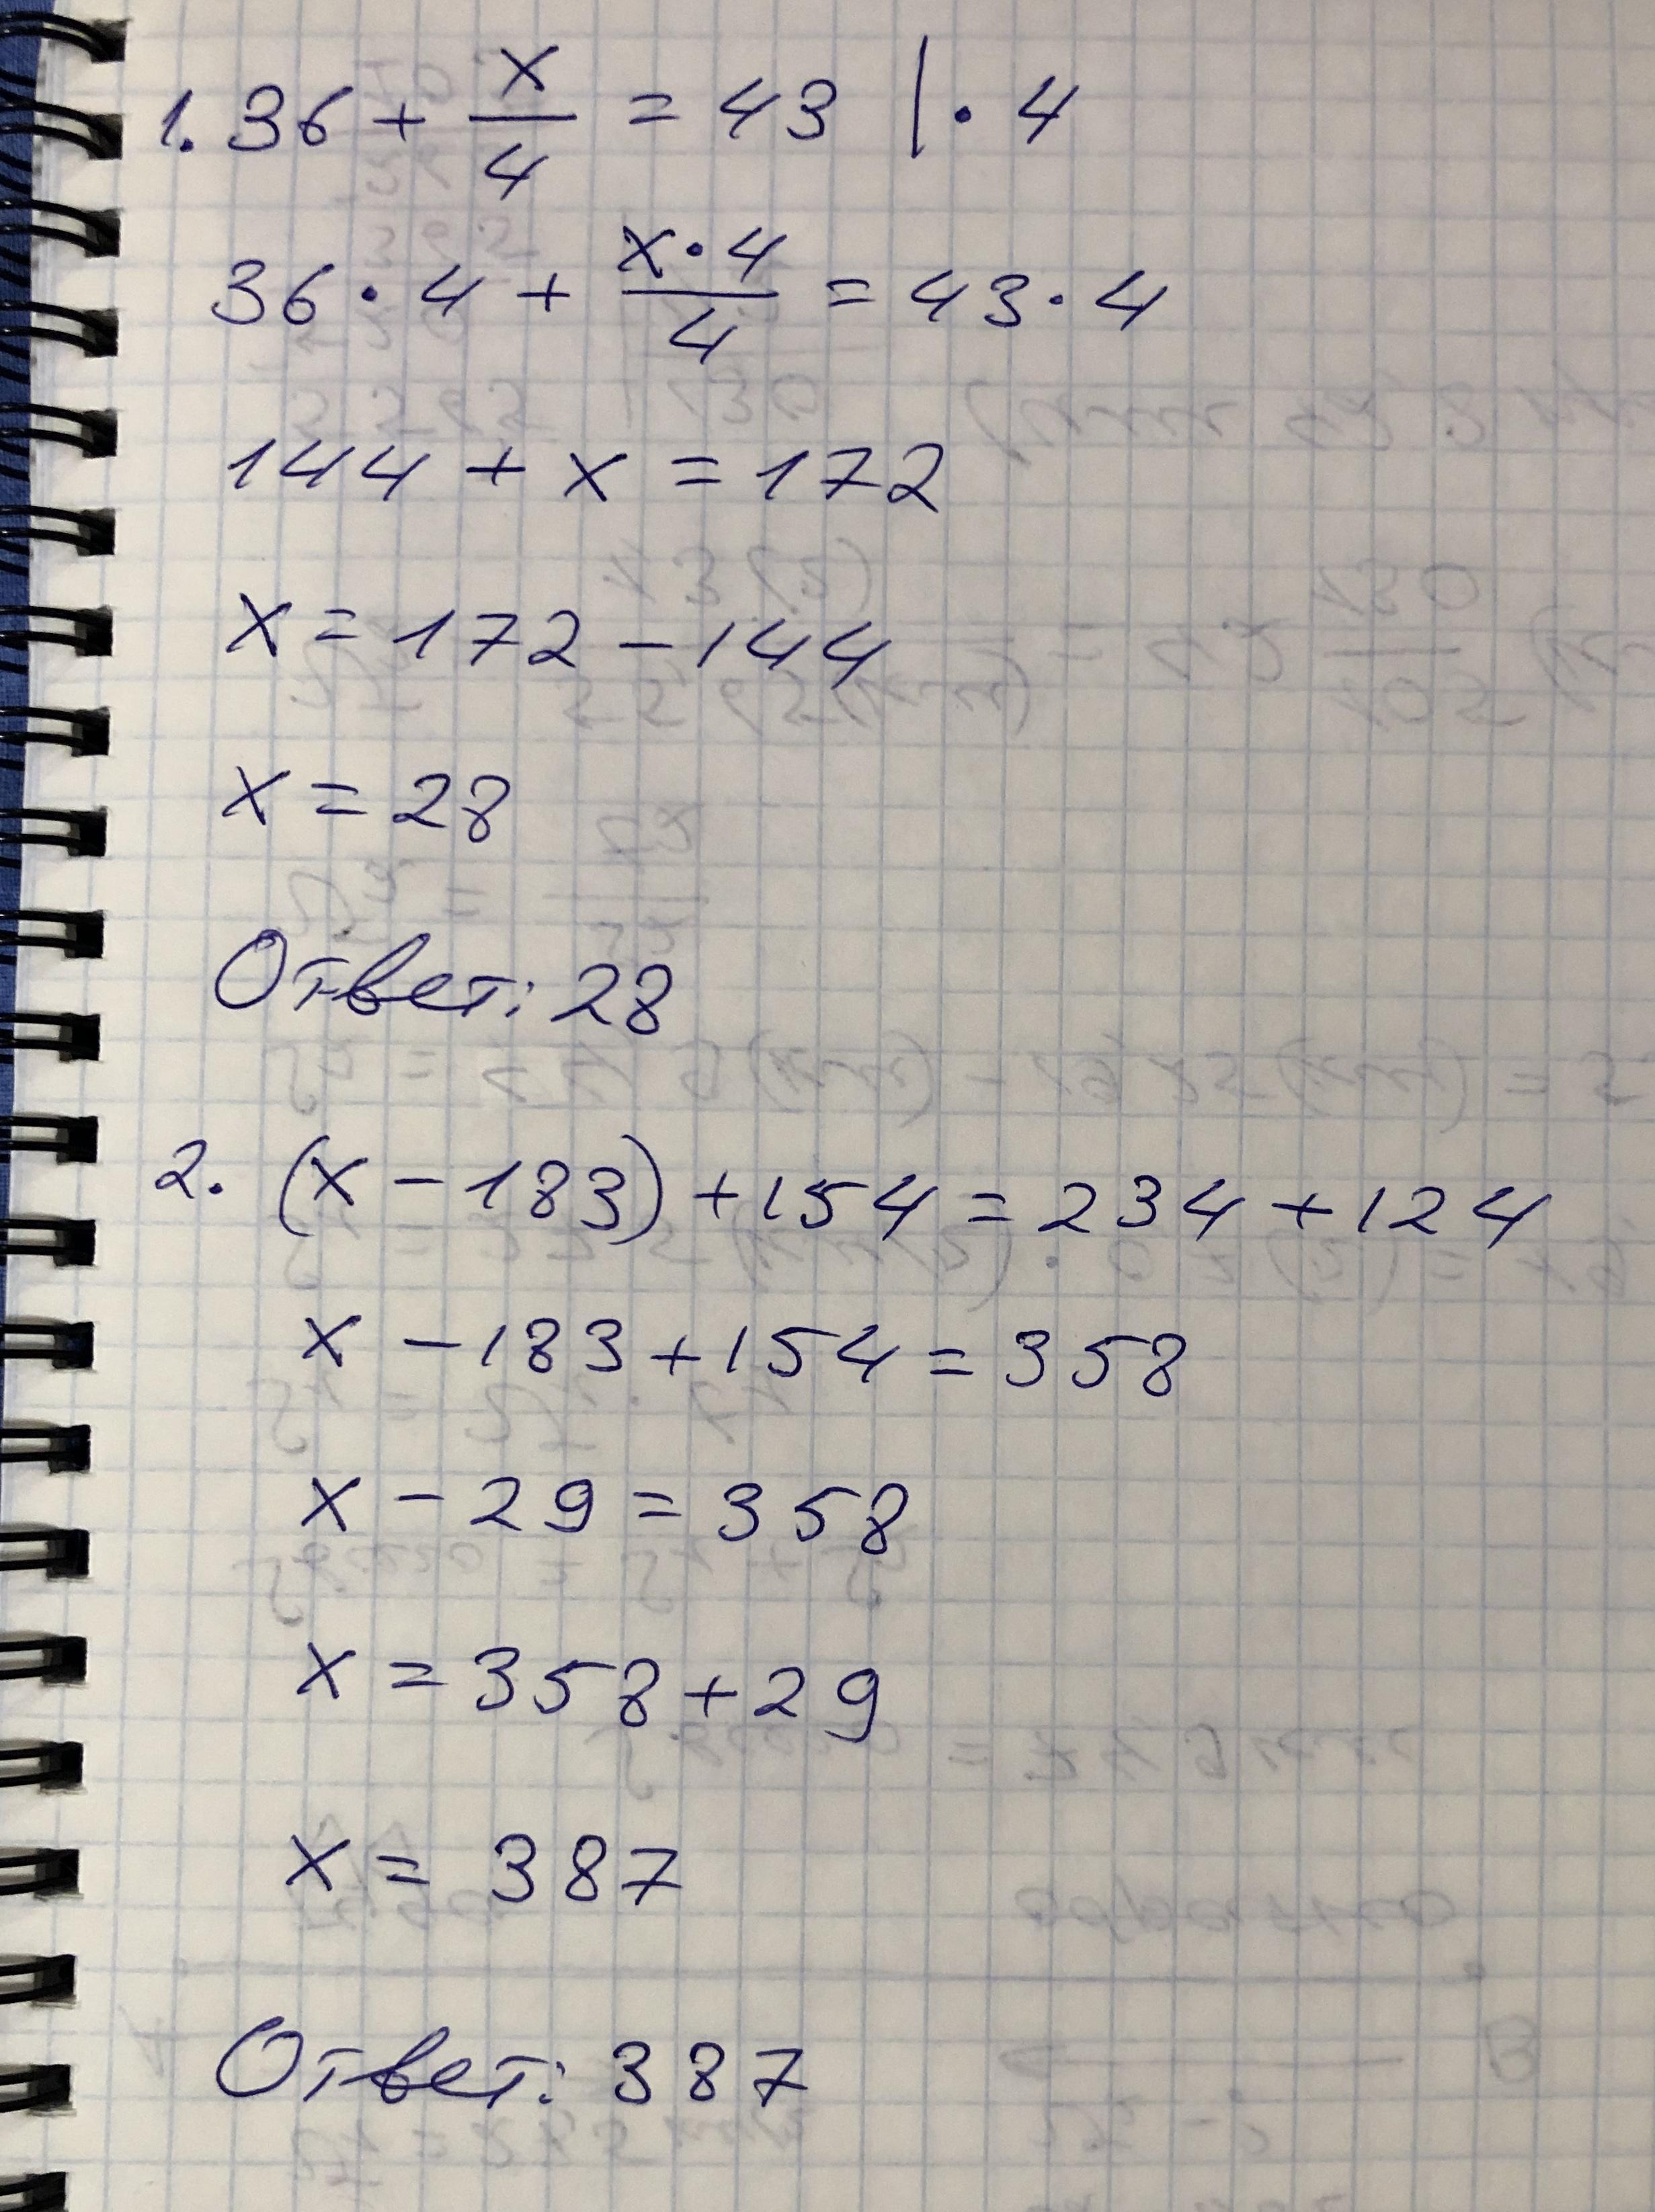 1. 36 + x/4 = 43 | · 4
36 · 4 + x · 4/4 = 43 · 4
144 + x = 172
x = 172 - 144
x = 28
Ответ: 28
2. (x - 183) + 154 = 234 + 124
x - 183 + 154 = 358
x - 29 = 358
x = 358 + 29
x = 387
Ответ: 387